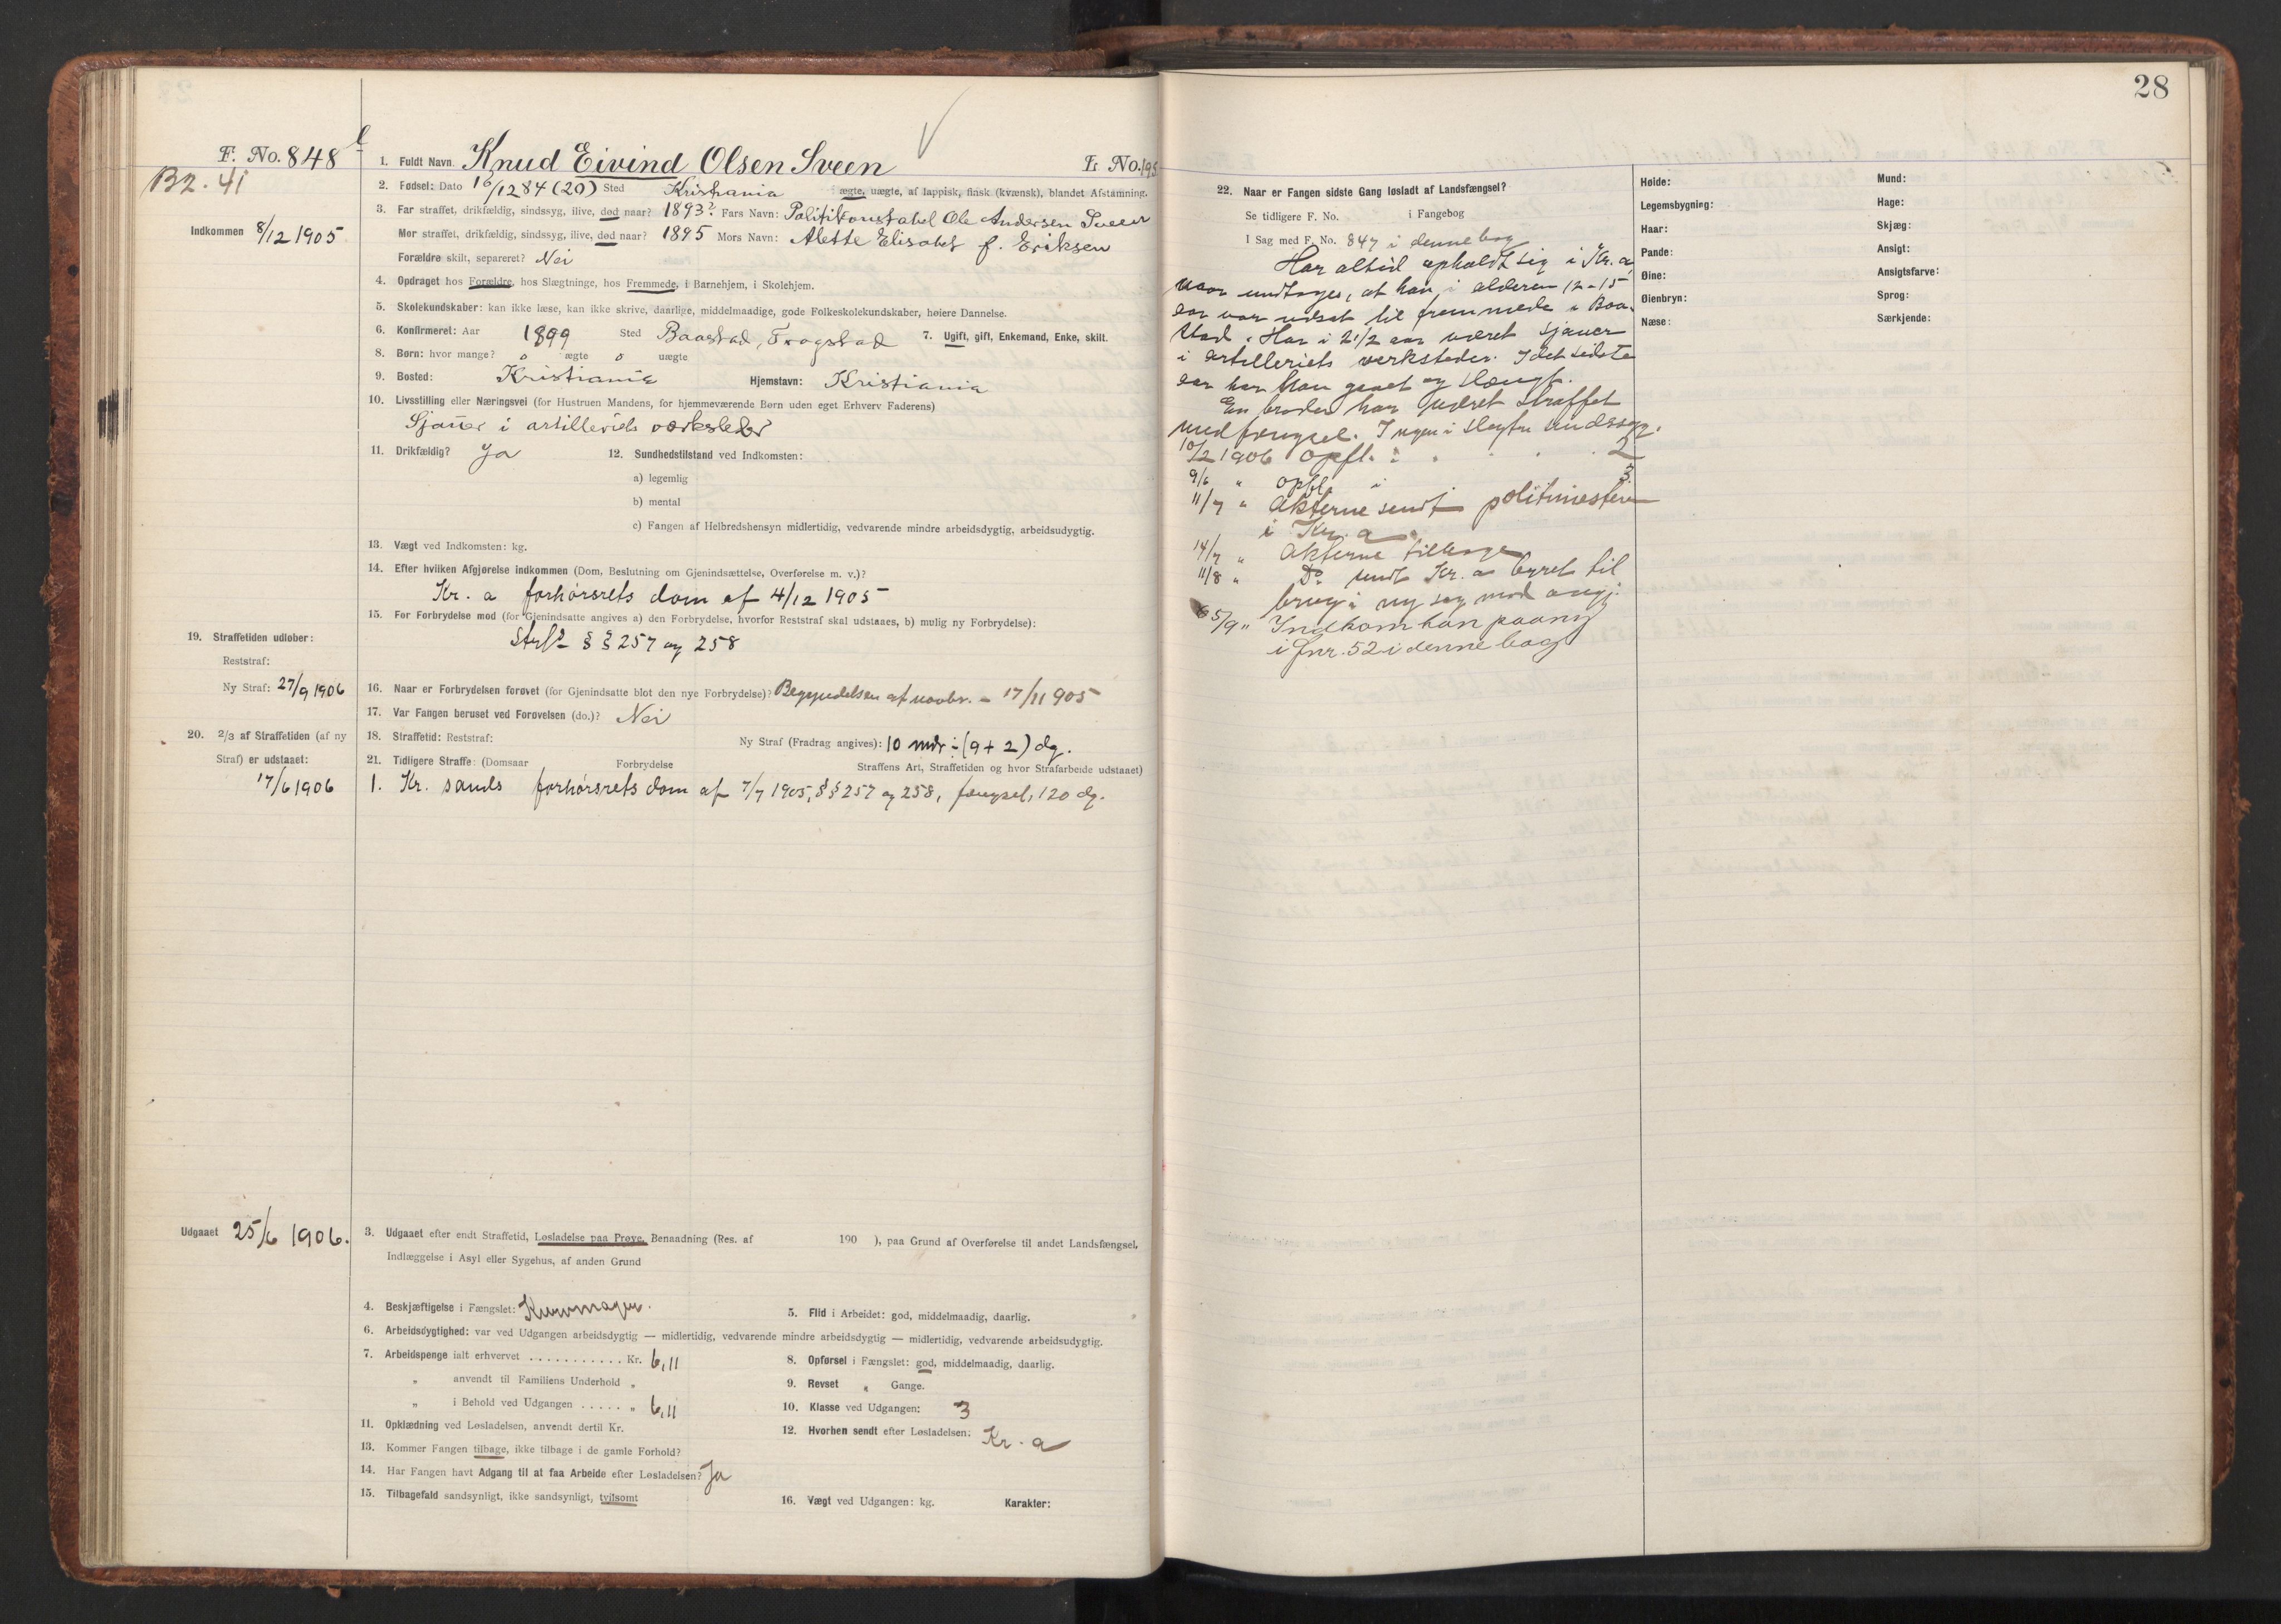 F. No. 848
B2. 41
Indkommen 8/12 1905
1. Fuldt Navn. Knud Eivind Olsen Sveen L No. 195
2. Fødsel: Dato 16/12 84 (20) Sted Kristiania ægte, uægte, af lappisk, finsk (kvænsk), blandet Afstamning.
3. Far straffet, drikfældig, sindssyg, ilive, død naar? 1893? Fars Navn: Politikonstabel Ole Andersen Sveen
Mor straffet, drikfældig, sindssyg, ilive, død naar? 1895 Mors Navn: Alette Elisabet f. Eriksen
Forældre skilt, separeret? Nei
4. Opdraget hos Forældre, hos Slægtninge, hos Fremmede, i Barnehjem, i Skolehjem.
5. Skolekundskaber: kan ikke læse, kan ikke skrive, daarlige, middelmaadige, gode Folkeskolekundskaber, høiere Dannelse.
6. Konfirmeret: Aar 1899 Sted Baastad, Trøgstad 7. Ugift, gift, Enkemand, Enke, skilt.
8. Børn: hvor mange? 0 ægte 0 uægte
9. Bosted: Kristiania Hjemstavn: Kristiania
10. Livsstilling eller Næringsvei (for Hustruen Mandens, for hjemmeværende Børn uden eget Erhverv Faderens)
Sjauer i artilleriets værksteder
11. Drikfældig? Ja 12. Sundhedstilstand ved Indkomsten:
a) legemlig
b) mental
c) Fangen af Helbredshensyn midlertidig, vedvarende mindre arbeidsdygtig, arbeidsudygtig.
13. Vægt ved Indkomsten: kg.
14. Efter hvilken Afgjørelse indkommen (Dom, Beslutning om Gjenindsættelse, Overførelse m. v.)?
Kr. a forhørsrets dom af 4/12 1905
15. For Forbrydelse mod (for Gjenindsatte angives a) den Forbrydelse, hvorfor Reststraf skal udstaaes, b) mulig ny Forbrydelse):
Strfl §§ 257 og 258
19. Straffetiden udløber:
Reststraf:
Ny Straf: 27/9 1906
16. Naar er Forbrydelsen forøvet (for Gjenindsatte blot den nye Forbrydelse)? Begyndelsen af novbr. - 17/11 905
17. Var Fangen beruset ved Forøvelsen (do.)? Nei
20. 2/3 af Straffetiden (af ny
Straf) er udstaaet:
17/6 1906
18. Straffetid: Reststraf: Ny Straf (Fradrag angives): 10 mdr ÷ (9 + 2) dg.
21. Tidligere Straffe: (Domsaar Forbrydelse Straffens Art, Straffetiden og hvor Strafarbeide udstaaet)
1. Kr. sands forhørsrets dom af 7/7 1905, §§ 257 og 258, fængsel, 120 dg.
Udgaaet 25/6 1906.
3. Udgaaet efter endt Straffetid, Løsladelse paa Prøve, Benaadning (Res. af 190 ), paa Grund af Overførelse til andet Landsfængsel,
Indlæggelse i Asyl eller Sygehus, af anden Grund
4. Beskjæftigelse i Fængslet: Kurvmager. 5. Flid i Arbeidet: god, middelmaadig, daarlig.
6. Arbeidsdygtighed: var ved Udgangen arbeidsdygtig — midlertidig, vedvarende mindre arbeidsdygtig — midlertidig, vedvarende arbeidsudygtig.
7. Arbeidspenge ialt erhvervet . . . . . . . . . . . Kr. 6,11 8. Opførsel i Fængslet: god, middelmaadig, daarlig.
" anvendt til Familiens Underhold " 9. Revset " Gange.
" i Behold ved Udgangen . . . . . " 6,11 10. Klasse ved Udgangen: 3
11. Opklædning ved Løsladelsen, anvendt dertil Kr. 12. Hvorhen sendt efter Løsladelsen: Kr. a
13. Kommer Fangen tilbage, ikke tilbage i de gamle Forhold?
14. Har Fangen havt Adgang til at faa Arbeide efter Løsladelsen? Ja
15. Tilbagefald sandsynligt, ikke sandsynligt, tvilsomt 16. Vægt ved Udgangen: kg. Karakter:
28
22. Naar er Fangen sidste Gang løsladt af Landsfængsel?
Se tidligere F. No. i Fangebog
I Sag med F. No. 847 i denne bog
Har altid opholdt sig i Kr. a,
naar undtages, at han i alderen 12-15
aar var udsat til fremmede i Baa-
stad. Har i 2 1/2 aar været sjauer
i artilleriets verksteder. I det sidste
aar har han gaaet og slængt.
En broder har været straffet
med fængsel. Ingen i slegten sindssyg.
10/2 1906 Opfl. i . . . . 2
9/6 " opfl. i 3
11/7 " Akterne sendt politimesteren
i Kr. a.
14/7 " Akterne tilbage
11/8 " Do sendt Kr. a byret til
brug i ny sag mod angj.
5/9 " Indkom han paany
i fnr. 52 i denne bog
Høide: Mund:
Legemsbygning: Hage:
Haar: Skjæg:
Pande: Ansigt:
Øine: Ansigtsfarve:
Øienbryn: Sprog:
Næse: Særkjende: